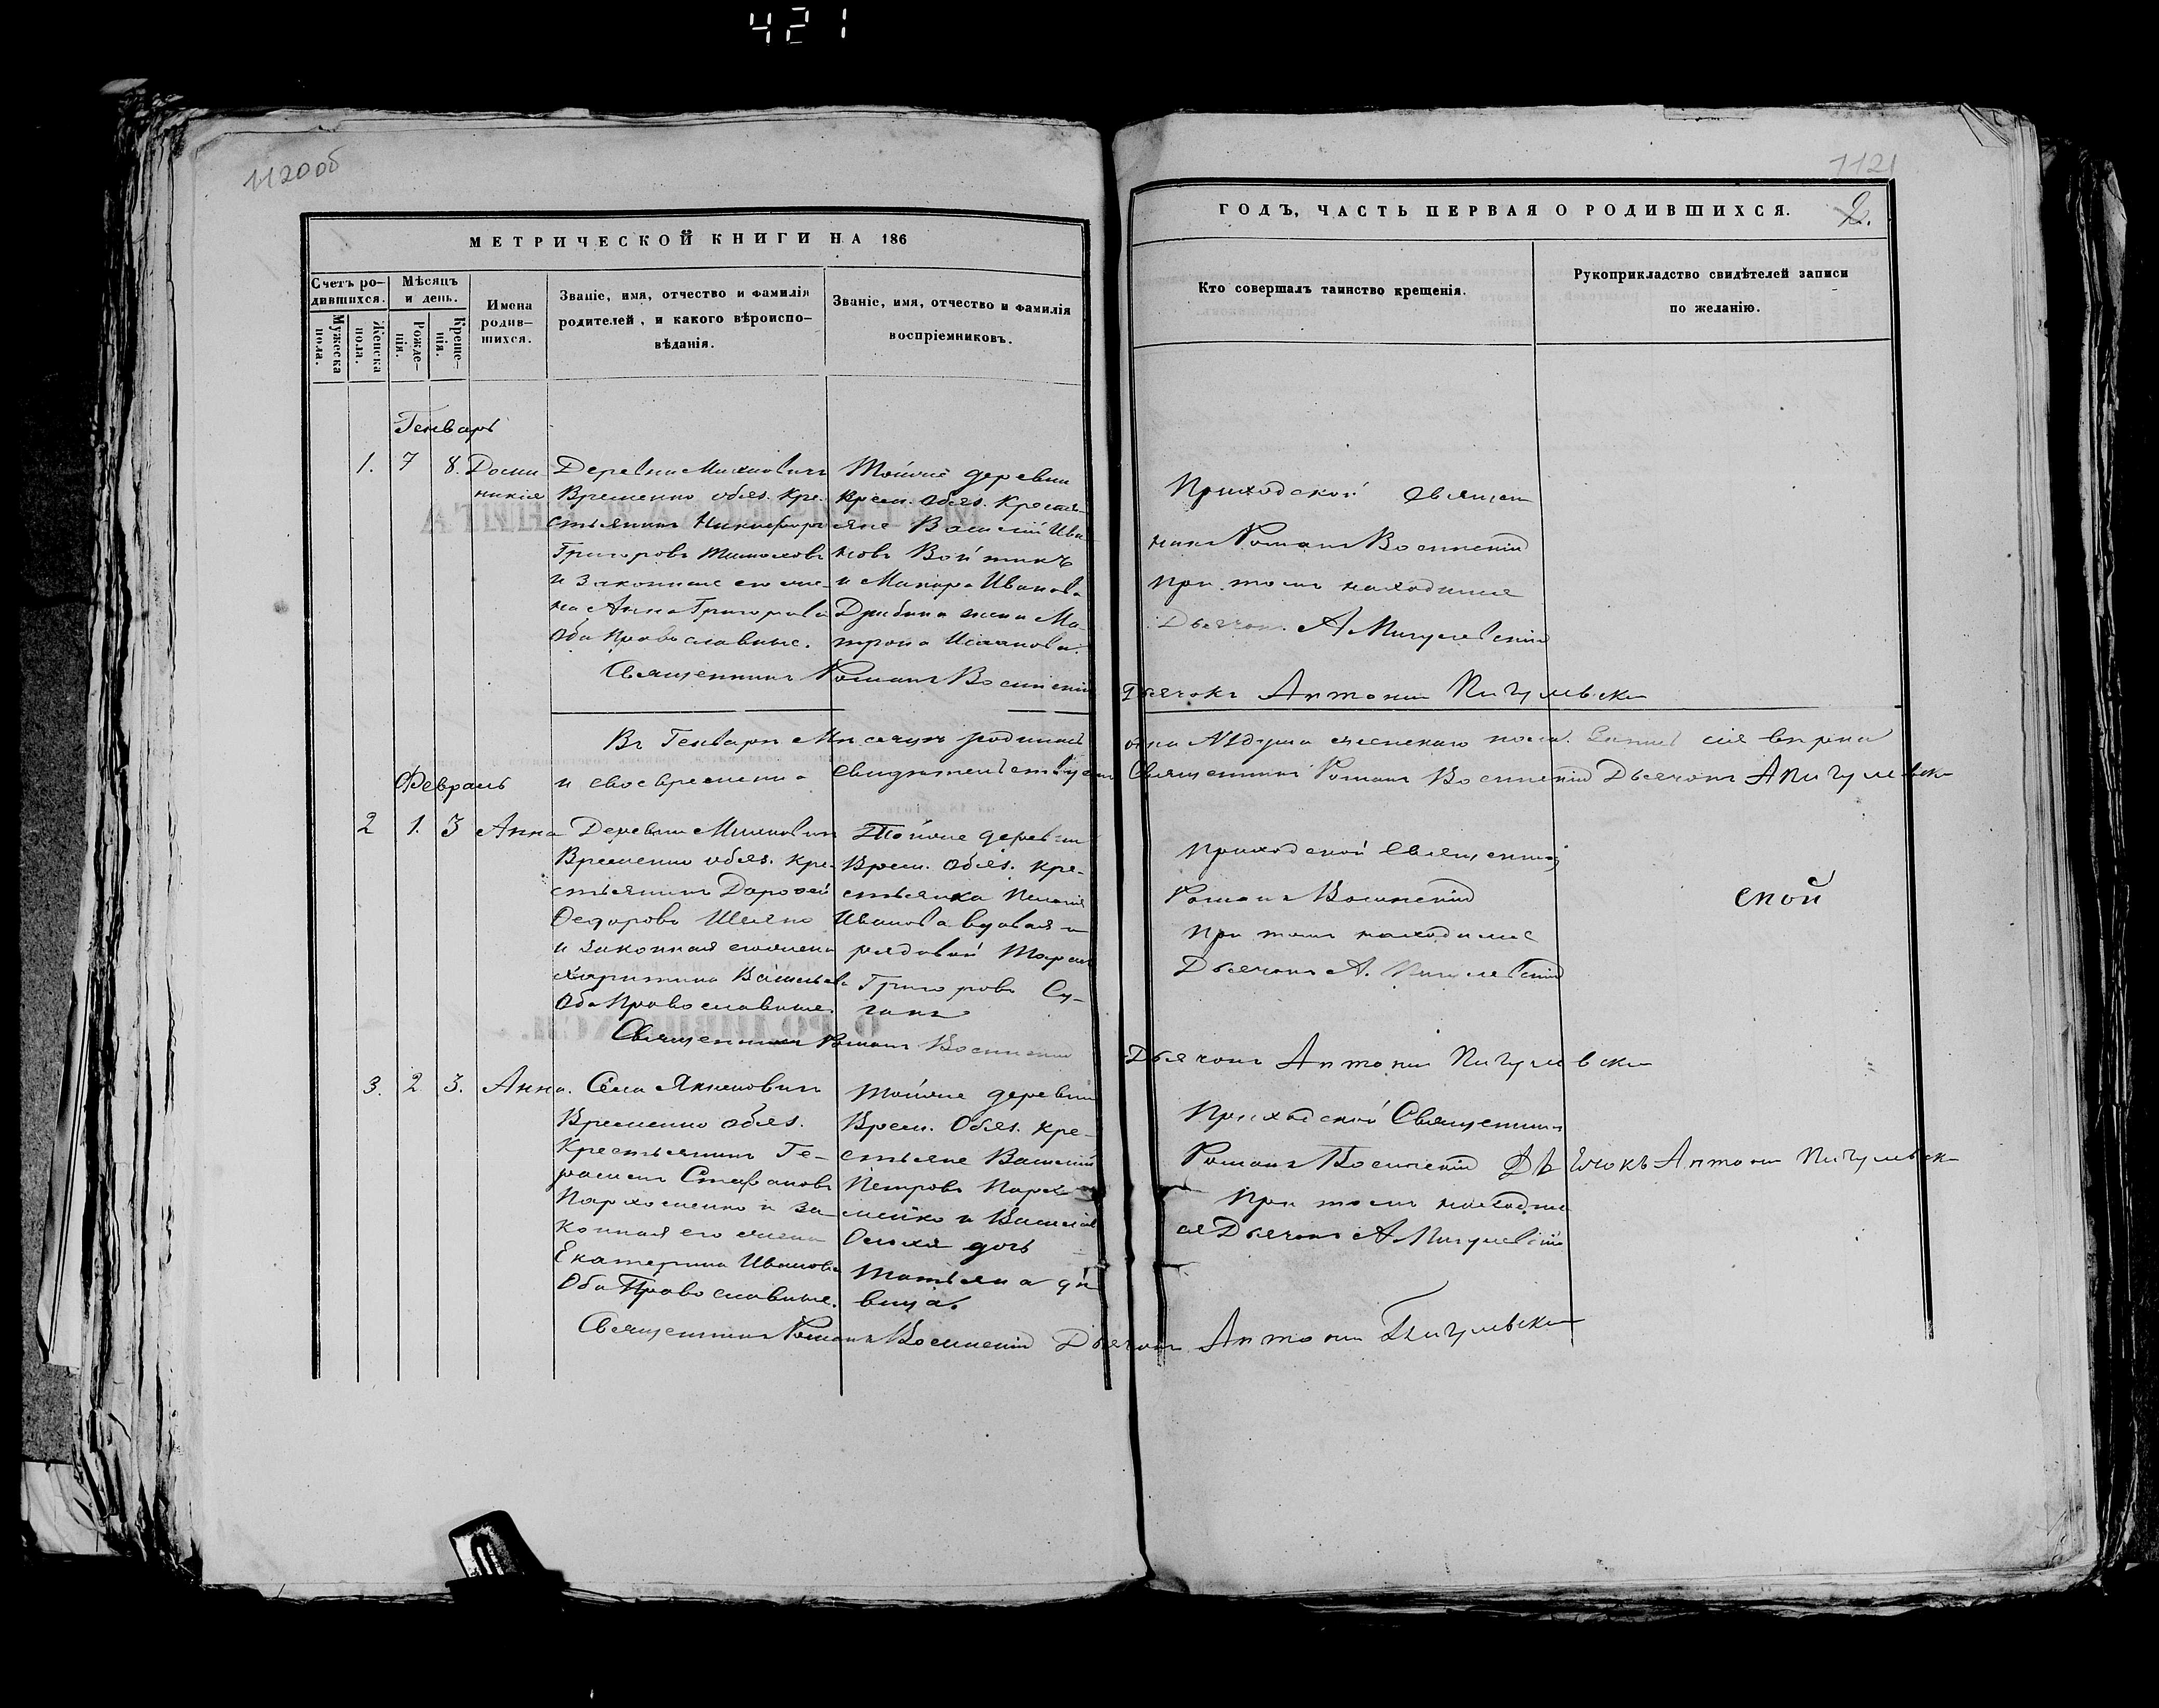 421
1120об
1121
2.
МЕТРИЧЕСКОЙ КНИГИ НА 186
ГОДЪ, ЧАСТЬ ПЕРВАЯ О РОДИВШИХСЯ.
Счетъ ро-
дившихся.
Мужеска
пола.
Женска
пола.
Мѣсяцъ
и день.
Рожде-
нія.
Креще-
нія.
Имена
родив-
шихся.
Званіе, имя, отчество и фамилія
родителей, и какого вѣроиспо-
вѣданія.
Званіе, имя, отчество и фамилія
воспріемниковъ.
Кто совершалъ таинство крещенія.
Рукоприкладство свидѣтелей записи
по желанію.
Генварь
1. 7 8. Доми
никія
Деревни
Временно обяз. Кре-
стьянинъ Никифоръ
Григоровъ
и законная его же-
на Анна Григорова
Оба Православные.
Тойже деревни
Врем. Обяз. Кресть-
яне Василій Ива
новъ Войтикъ
и Макара Иванова
жена Ма
трона
Приходской Священ
никъ Романъ
при томъ находился
Дьячокъ А Пигулевскій
Священникъ Романъ
Дьячокъ Антони Пигулевски
Въ Генварѣ Мѣсяцѣ родилась
одна душа женскаго пола. сія вѣрна
и своевременна свидѣтельствуем
Священникъ Романъ Дьячокъ А Пигулевски
Февраль
2 1. 3 Анна
Деревни
Временно обяз. Кре-
стьянинъ Дорофей
Федоровъ
и законная его жена
Харитина Васильева
Оба Православные.
Тойже деревни
Врем. Обяз. Кре-
стьянка
Иванова вдова и
рядовой Тарас
Григоровъ Су-
Приходской Священник
Романъ
При томъ находился
Дьячокъ А. Пигулевскій
ской
Священникъ Романъ
Дьячокъ Антони Пигулевски
3. 2 3. Анна.
Села Якимовичъ
Временно обяз.
Крестьянинъ Ге-
расимъ Стефановъ
Пархоменко и за-
конная его жена
Екатерина Иванова
Оба Православные.
Тойже деревни
Врем. Обяз. Кре-
стьяне Василій
Петровъ Пархо
менко и
дочь
Татьяна дѣ
вица.
Приходской Священникъ
Романъ
Дьячокъ Антони Пигулевски
При томъ находил
ся Дьячокъ А Пигулевскій
Священникъ Романъ Дьячокъ Антони Пигулевски